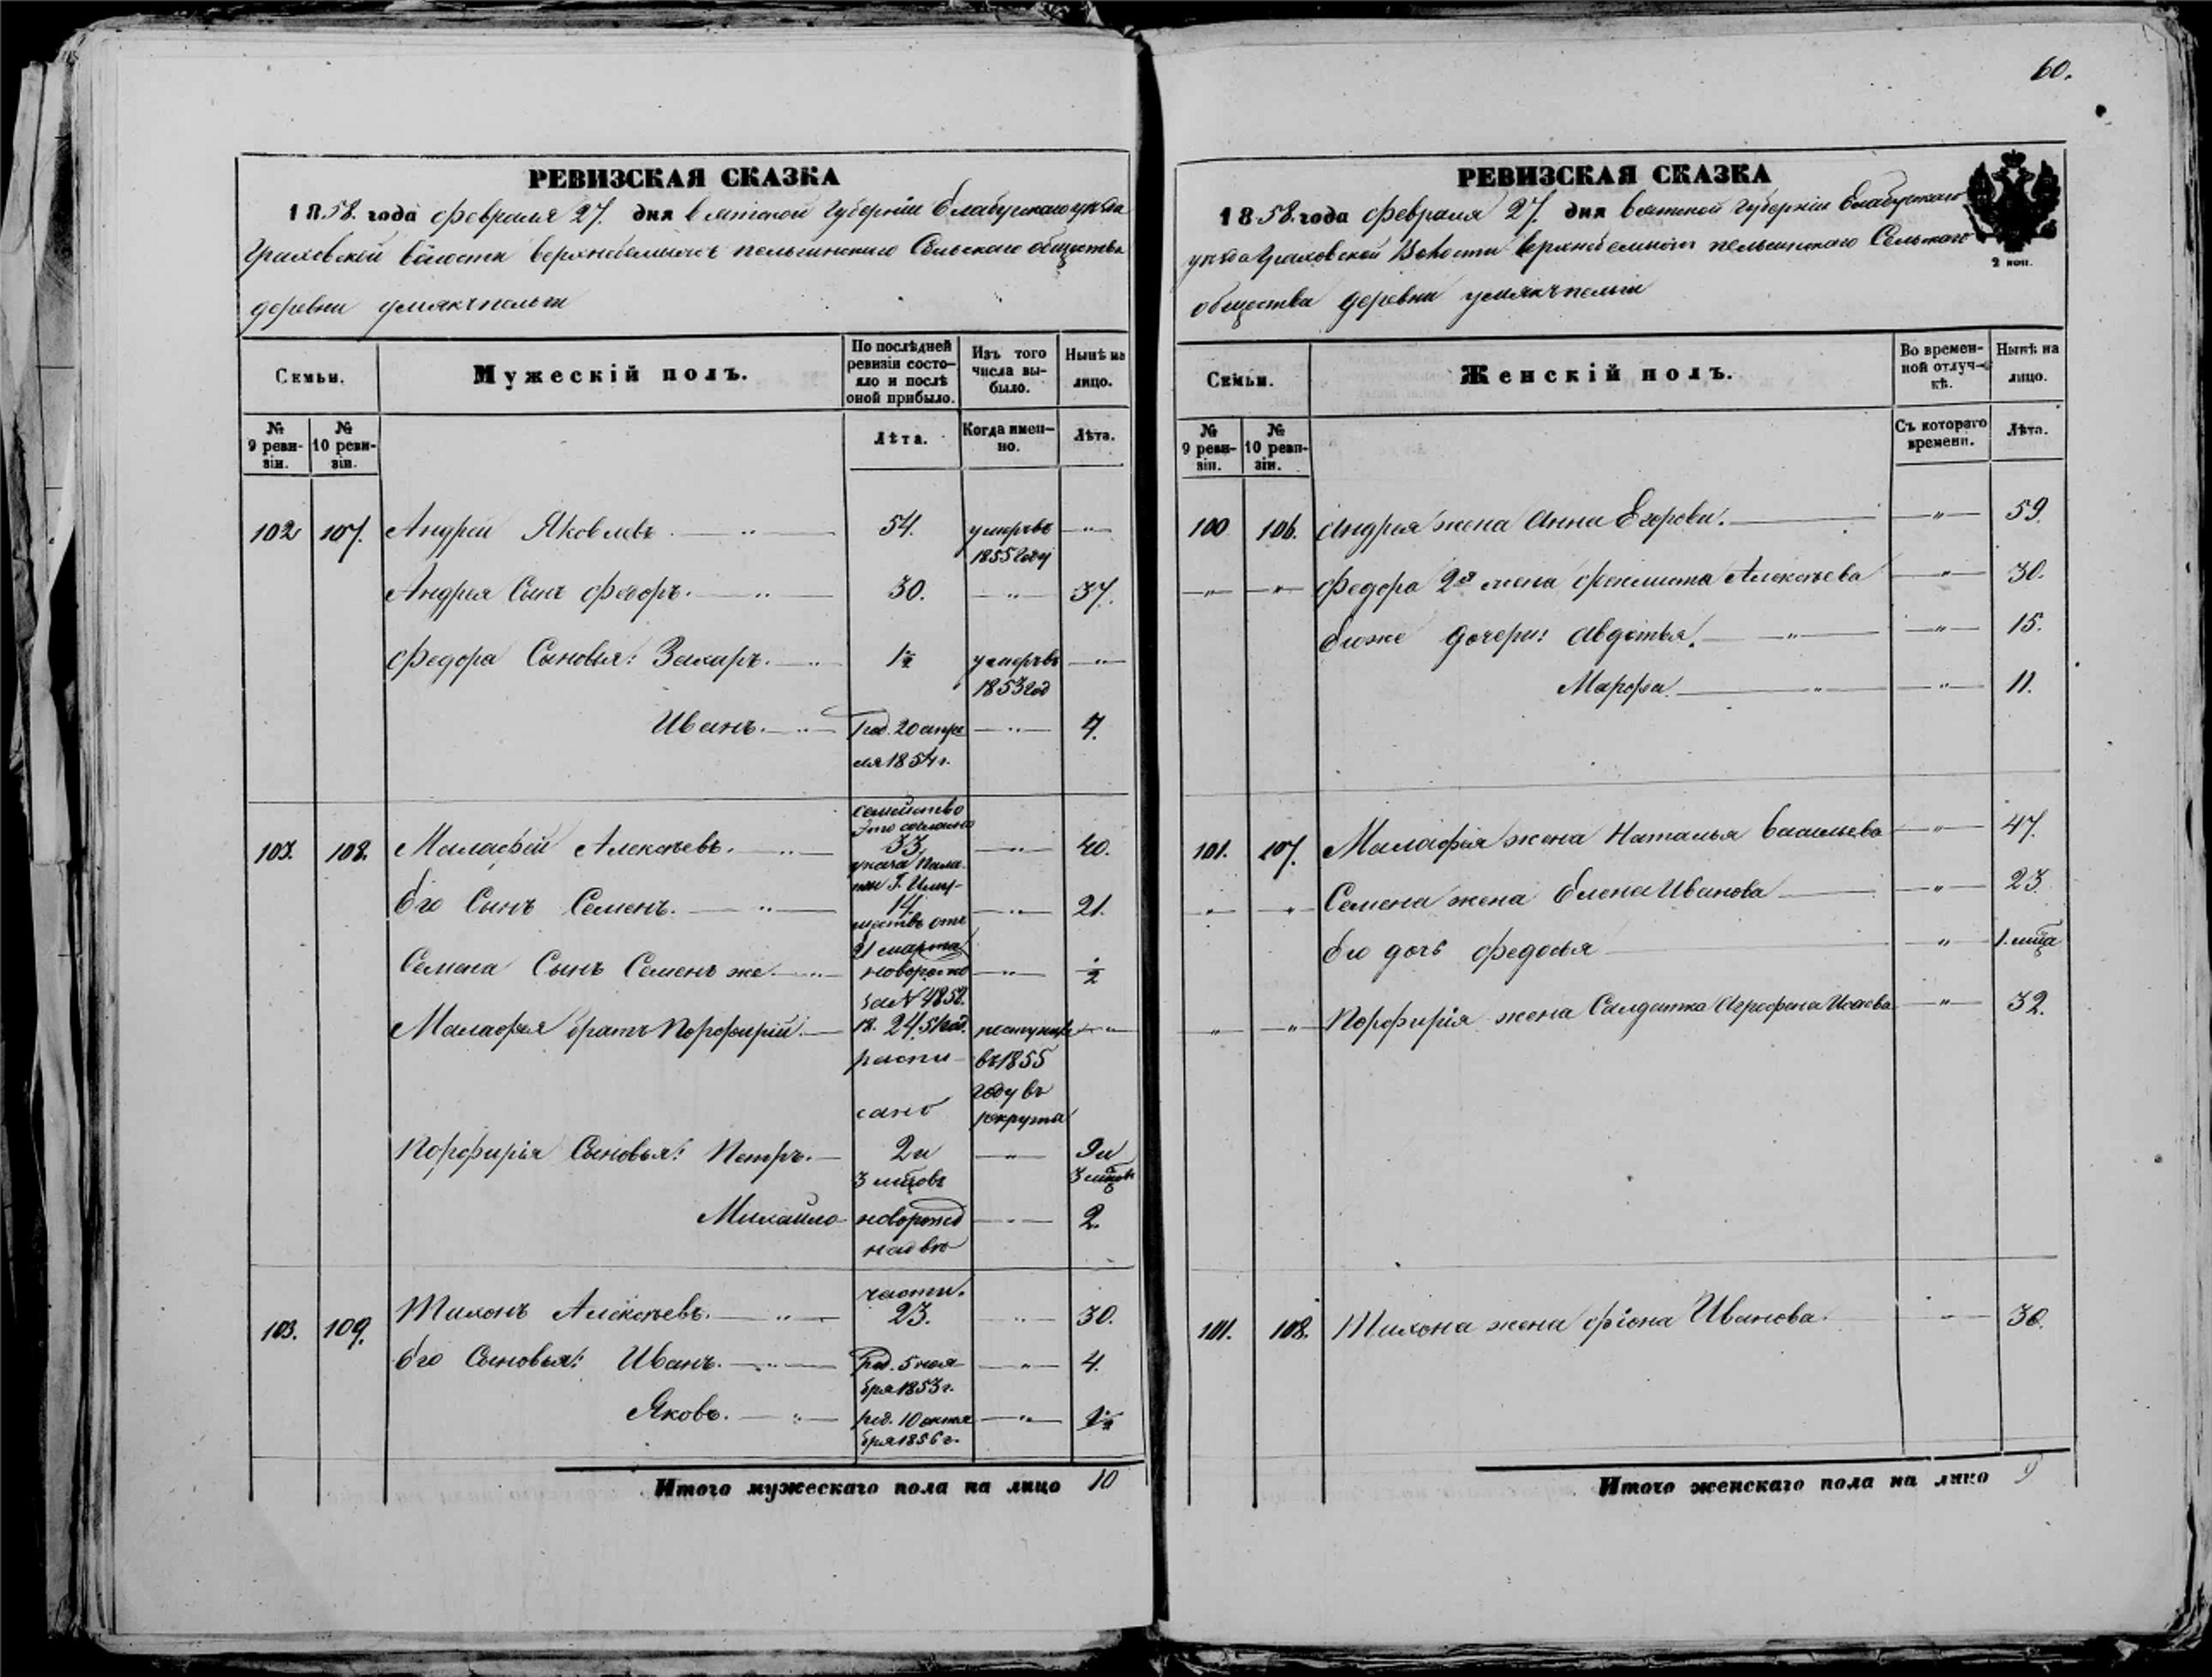 60.
РЕВИЗСКАЯ СКАЗКА
1858. года февраля 27. дня Вятской губернiи Елабужскаго уѣзда
Граховской волости Верхнебемышъ пельгинскаго Сельскаго общества
деревни
Семьи.
Мужескій полъ.
По послѣдней ревизіи состо-
яло и послѣ
оной прибыло.
Изъ того
числа вы-
было.
Нынѣ на
лицо.
№
9 реви-
зіи.
№
10 реви-
зіи.
Лѣта.
Когда имен-
но.
Лѣта.
102 107. Андрей Яковлевъ. — „ — 54. умеръ въ — „ —
1855 году
Андрея Сынъ Федоръ. — „ — 30. — „ — 37.
Федора Сыновья: Захаръ. — „ 1½ умеръ въ — „ —
1853 год
Иванъ. — „ — Род. 20 апре — „ — 4.
ля 1854 г.
семейство
это согласно
103. 108. Малафей Алексѣевъ. — „ — 33, — „ — 40.
указа Пала
ты Г. Иму-
Его Сынъ Семенъ. — „ — 14. — „ — 21.
ществъ отъ
21 марта
Семена Сынъ Семенъ же. — „ новорожд — „ — ½
за № 4858.
Малафея братъ Порфирій. — 18. 24. 51 год. поступил — „
распи- въ 1855
году въ
сано рекруты
Порфирія Сыновья: Петръ. — 2 и — „ — 9 и
3 мцовъ 3 мцовъ
Михайло новорожд — „ — 2.
на двѣ
части.
103. 109. Тихонъ Алексѣевъ. — „ — 23. — „ — 30.
Его Сыновья: Иванъ. — „ — Род. 5 ноя- — „ — 4.
бря 1853 г.
Яковъ. — „ — род. 10 октя — „ — 1½
бря 1856 г.
Итого мужескаго пола на лицо 10
РЕВИЗСКАЯ СКАЗКА
1858. года февраля 27. дня Вятской губерніи Елабужскаго
уѣзда Граховской Волости Верхнебемышъ пельгинскаго Сельскаго
общества деревни
2 коп.
Семьи.
Женскій полъ.
Во времен-
ной отлуч-
кѣ.
Нынѣ на
лицо.
№
9 реви-
зіи.
№
10 реви-
зіи.
Съ котораго
времени.
Лѣта.
100 106. Андрея жена Анна Егорова. — „ — 59.
— „ — — „ — Федора 2я жена Феклиста Алексѣева — „ — 30.
Его же дочери: Авдотья. — „ — — „ — 15.
Марфа. — „ — — „ — 11.
101. 107. Малафея жена Наталья Васильева — „ — 47.
— „ — — „ — Семена жена Елена Иванова — — „ — 23.
Его дочь Федосья — „ 1. мца
— „ — — „ Порфирія жена Салдатка Аграфена Исаева — „ — 32.
101. 108. Тихона жена Фіона Иванова. — „ — 30.
Итого женскаго пола на лицо 9